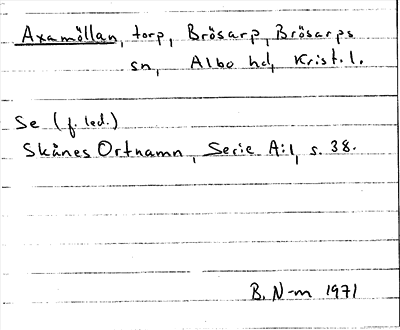 Axamöllan, torp, Brösarp, Brösarps
sn, Albo hd, Krist. l.
Se (f. led.)
Skånes Ortnamn, Serie A:1, s. 38.
B. N-m 1971